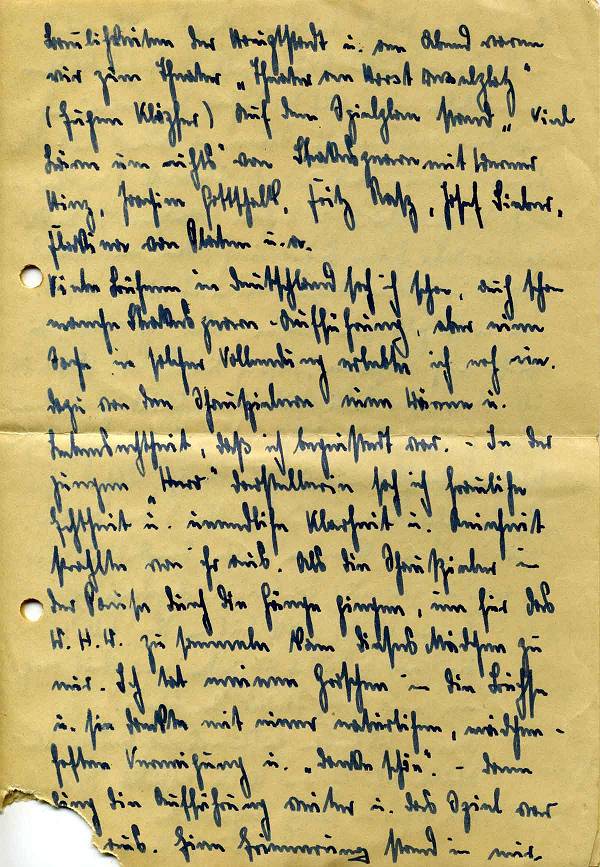 Baulichkeiten der Hauptstadt u. am Abend waren
wir zum Theater „Theater am Horst Wesselplatz"
(Eugen Klöpfer) Auf dem Spielplan stand „Viel
Lärm um nichts" von Shakespeare mit Werner
Hinz, Joachim Gottschalk, Fritz Rasp, Josef Sieber,
von Platen u. a.
Viele Bühnen in Deutschland sah ich schon, auch schon
manche Shakespeare-Aufführung, aber eine
Sache in solcher Vollendung erlebte ich noch nie.
Dazu von den Schauspielern eine Wärme u.
Lebensechtheit, daß ich begeistert war. – In der
jungen „Hero" Darstellerin sah ich frauliche
Echtheit u. unendliche Klarheit u. Reinheit
strahlte von ihr aus. Als die Schauspieler in
der Pause durch die Gänge gingen, um für das
W.H.W. zu sammeln kam dieses Mädchen zu
mir. Ich tat meinen Groschen in die Büchse
u. sie dankte mit einer natürlichen, mädchen-
haften Verneigung u. „danke schön". – dann
ging die Aufführung weiter u. das Spiel war
aus. Eine Erinnerung stand in mir.